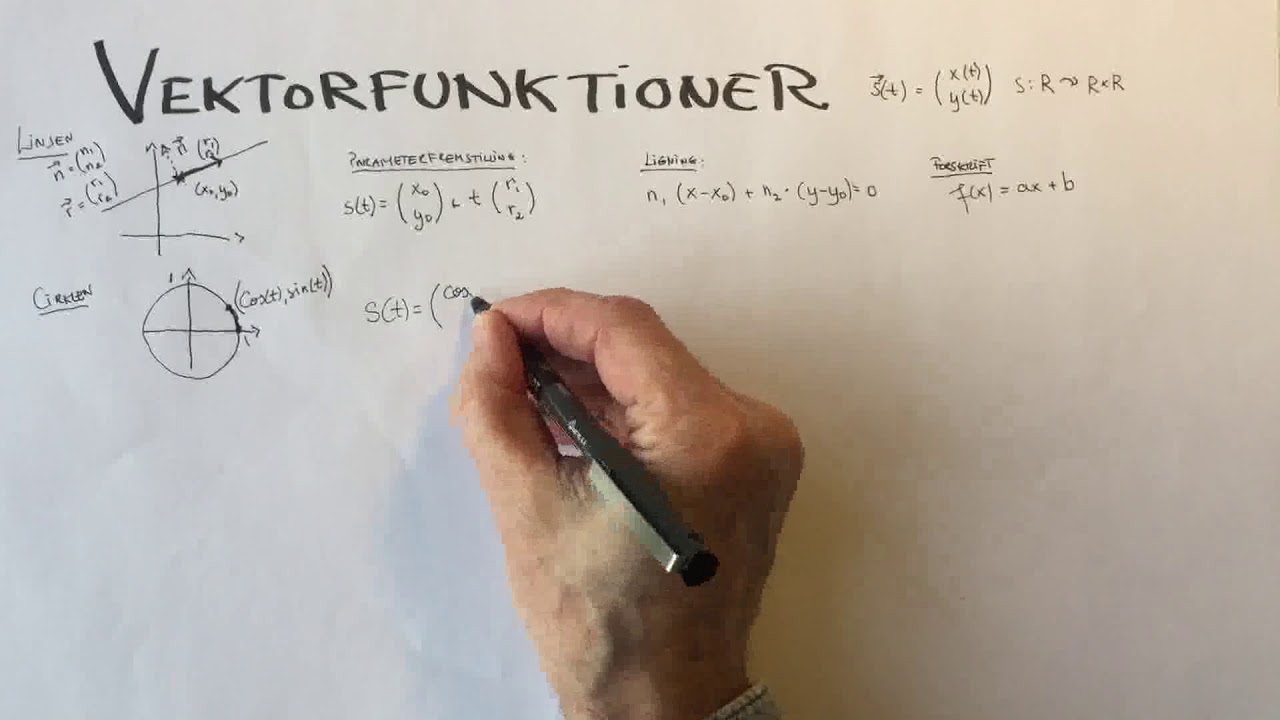 VEKTORFUNKTIONER
s⃗(t) = (x(t) y(t)) S: R ↷ R×R
LINJEN
n⃗ = (n1 n2)
r⃗ = (r1 r2)
n⃗ (r1 r2)
(x0, y0)
PARAMETERFREMSTILLING:
s(t) = (x0 y0) + t (r1 r2)
LIGNING:
n1 (x-x0) + n2 · (y-y0) = 0
FORSKRIFT
f(x) = ax + b
CIRKLEN
1
(cos(t), sin(t))
1
S(t) = (cos